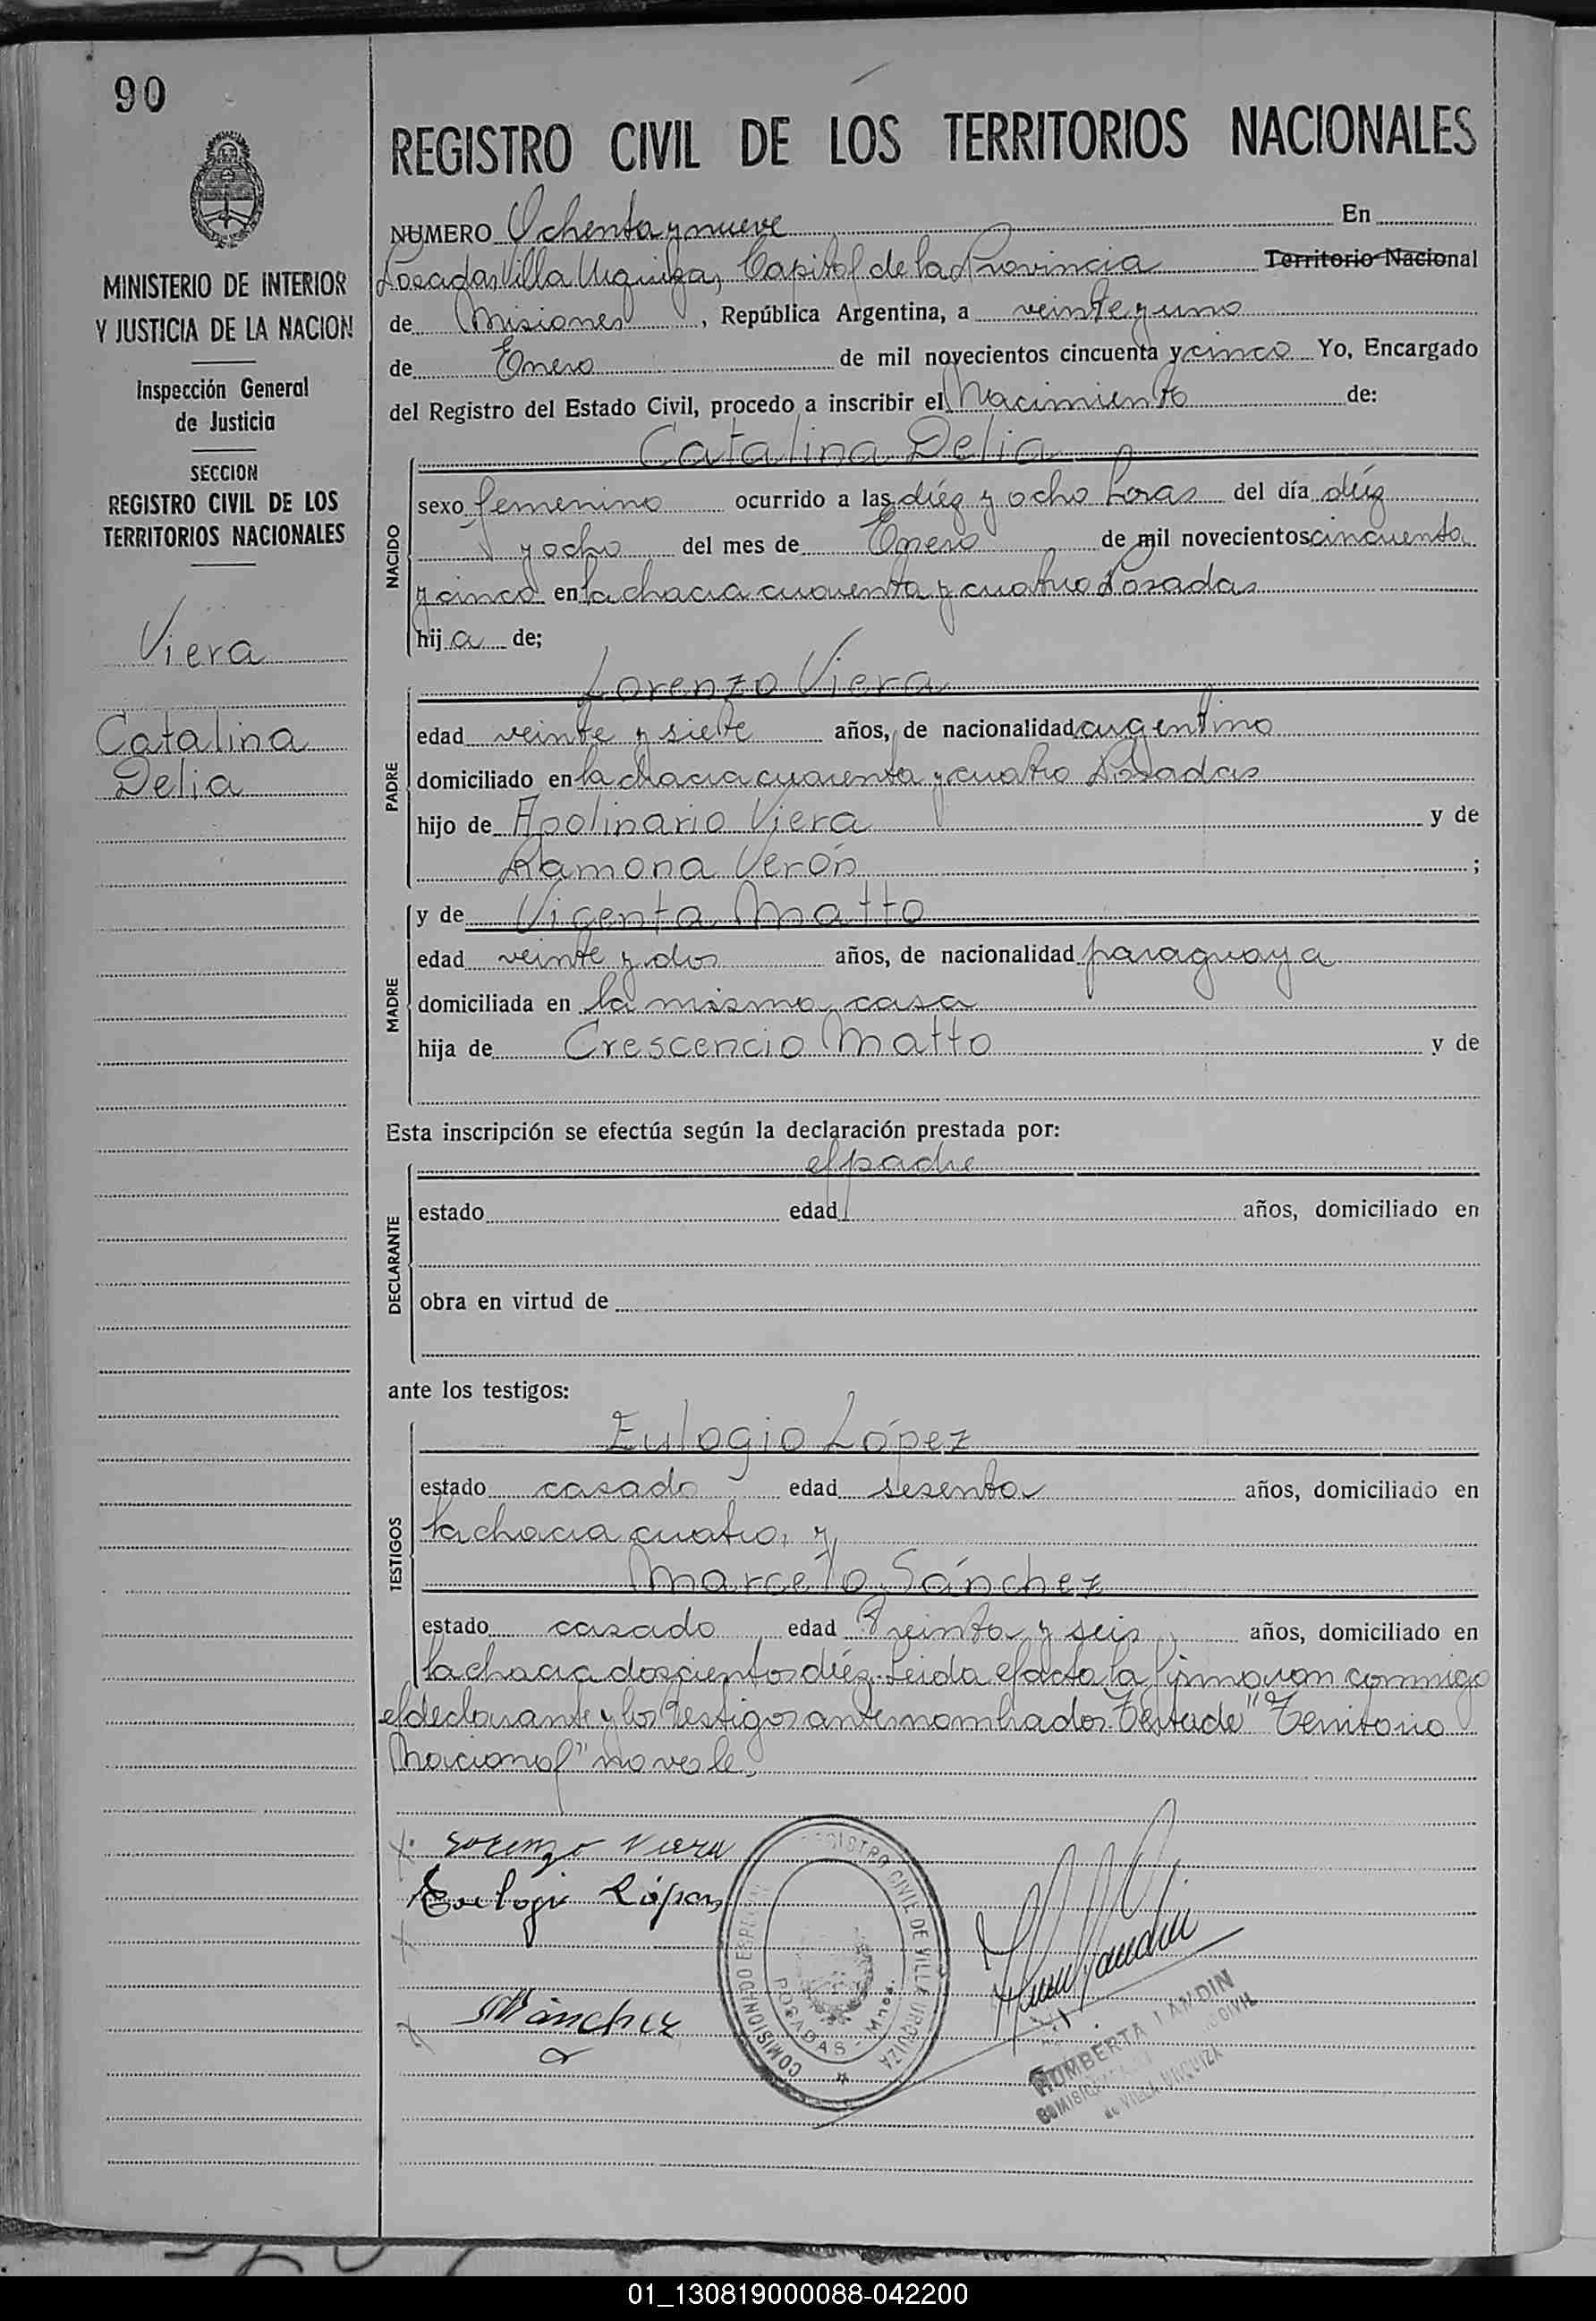 90
MINISTERIO DE INTERIOR
Y JUSTICIA DE LA NACION
Inspección General
de Justicia
SECCION
REGISTRO CIVIL DE LOS
TERRITORIOS NACIONALES
Viera
Catalina
Delia
REGISTRO CIVIL DE LOS TERRITORIOS NACIONALES
NUMERO Ochenta y nueve En
Posadas, Villa Urquiza, Capital de la Provincia Territorio Nacional
de Misiones, República Argentina, a veinte y uno
de Enero de mil novecientos cincuenta y cinco Yo, Encargado
del Registro del Estado Civil, procedo a inscribir el Nacimiento de:
Catalina Delia
NACIDO
sexo femenino ocurrido a las diéz y ocho horas del día diéz
y ocho del mes de Enero de mil novecientos cincuenta
y cinco en la chacra cuarenta y cuatro Posadas
hija de;
Lorenzo Viera
PADRE
edad veinte y siete años, de nacionalidad argentino
domiciliado en la chacra cuarenta y cuatro Posadas
hijo de Apolinario Viera y de
Ramona Verón ;
MADRE
y de Vicenta Matto
edad veinte y dos años, de nacionalidad paraguaya
domiciliada en la misma casa
hija de Crescencio Matto y de
Esta inscripción se efectúa según la declaración prestada por:
el padre
DECLARANTE
estado edad años, domiciliado en
obra en virtud de
ante los testigos:
Eulogio López
TESTIGOS
estado casado edad sesenta años, domiciliado en
la chacra cuatro, y
Marcelo Sánchez
estado casado edad treinta y seis años, domiciliado en
la chacra doscientos diéz. Leida el acta la firmaron conmigo
el declarante y los testigos antes nombrados. Testado "Territorio
Nacional" no vale.
Lorenzo Viera
Eulogio López
MSánchez
REGISTRO CIVIL DE VILLA URQUIZA
COMISIONADO ESPECIAL
POSADAS - Mnes.
HUMBERTA LANDIN
de VILLA URQUIZA
01_130819000088-042200